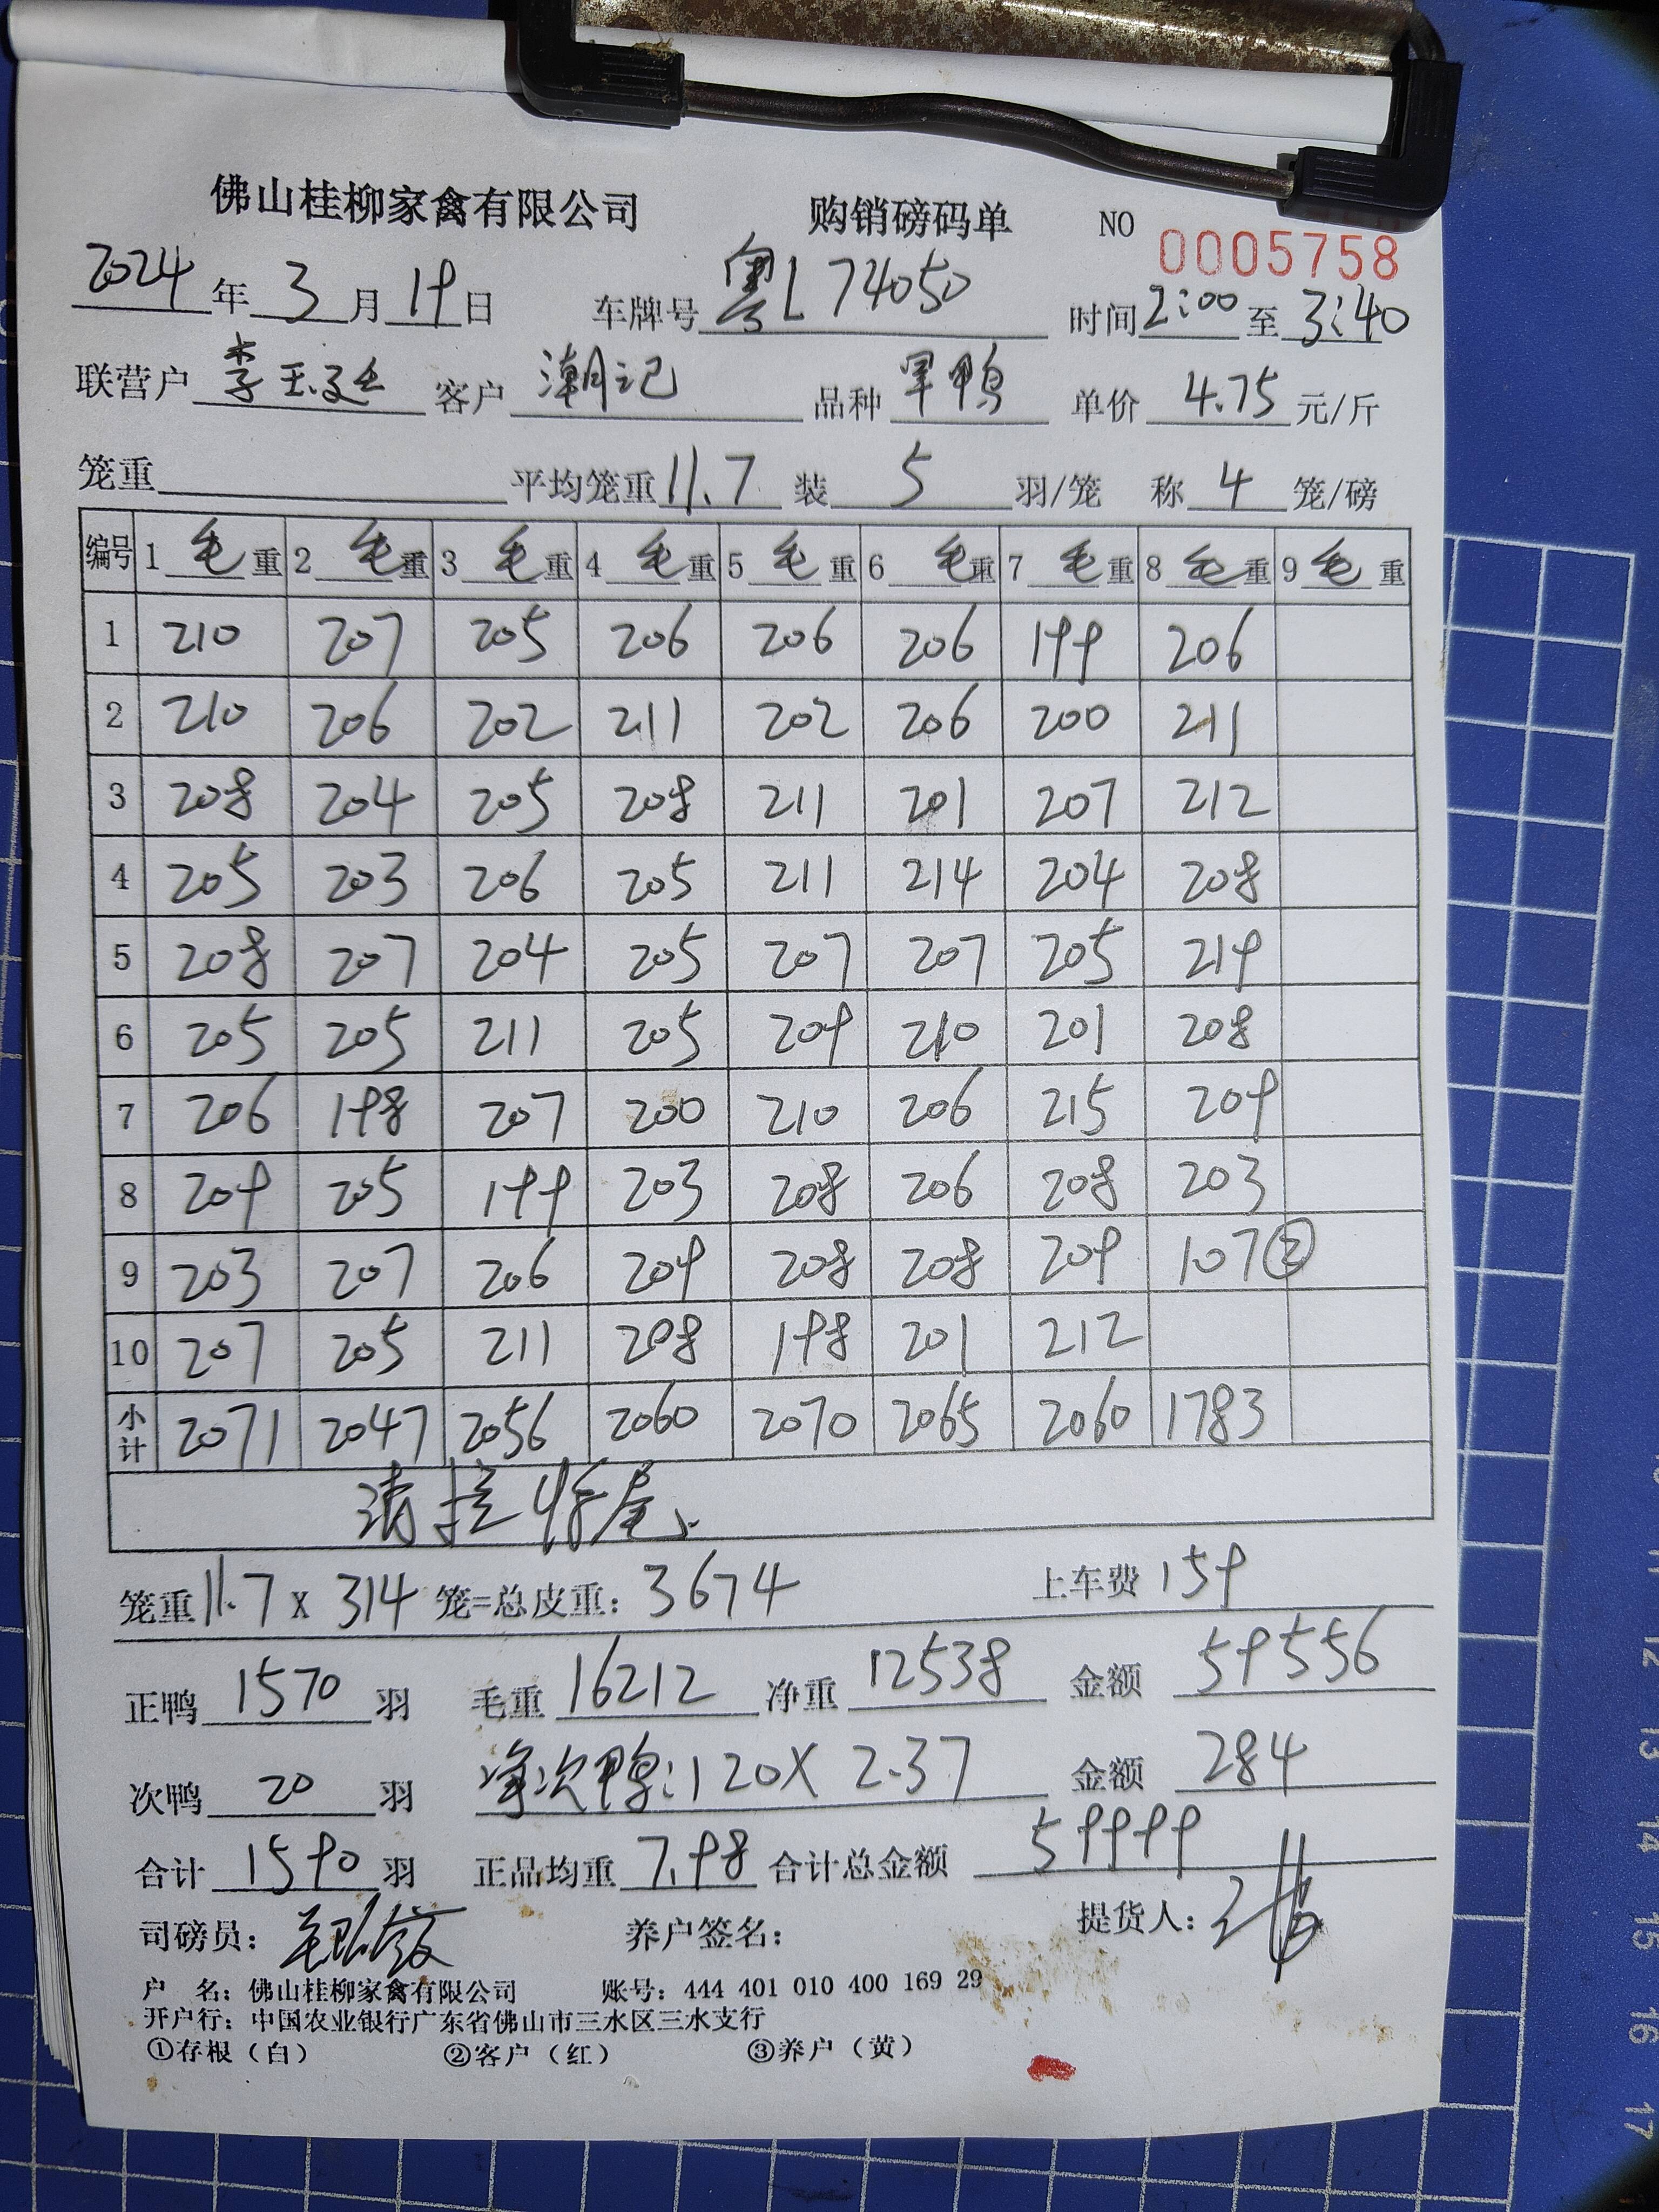 佛山桂柳家禽有限公司 购销磅码单 NO 0005758
2024年3月19日 车牌号 粤L74050 时间2:00至3:40
联营户 李玉廷 客户 潮记 品种 旱鸭 单价 4.75 元/斤
笼重 平均笼重11.7 装 5 羽/笼 称 4 笼/磅
编号 1 毛重 2 毛重 3 毛重 4 毛重 5 毛重 6 毛重 7 毛重 8 毛重 9 毛重
1 210 207 205 206 206 206 199 206
2 210 206 202 211 202 206 200 211
3 208 204 205 208 211 201 207 212
4 205 203 206 205 211 214 204 208
5 208 207 204 205 207 207 205 219
6 205 205 211 205 209 210 201 208
7 206 198 207 200 210 206 215 209
8 209 205 199 203 208 206 208 203
9 203 207 206 209 208 208 209 107②
10 207 205 211 208 198 201 212
小计 2071 2047 2056 2060 2070 2065 2060 1783
笼重11.7 X 314 笼=总皮重: 3674 上车费 159
正鸭 1570 羽 毛重 16212 净重 12538 金额 59556
次鸭 20 羽 净次鸭:120X 2.37 金额 284
合计 1590 羽 正品均重 7.98 合计总金额 59999
司磅员: 养户签名: 提货人:
户 名: 佛山桂柳家禽有限公司 账号: 444 401 010 400 169 29
开户行: 中国农业银行广东省佛山市三水区三水支行
①存根(白) ②客户(红) ③养户(黄)